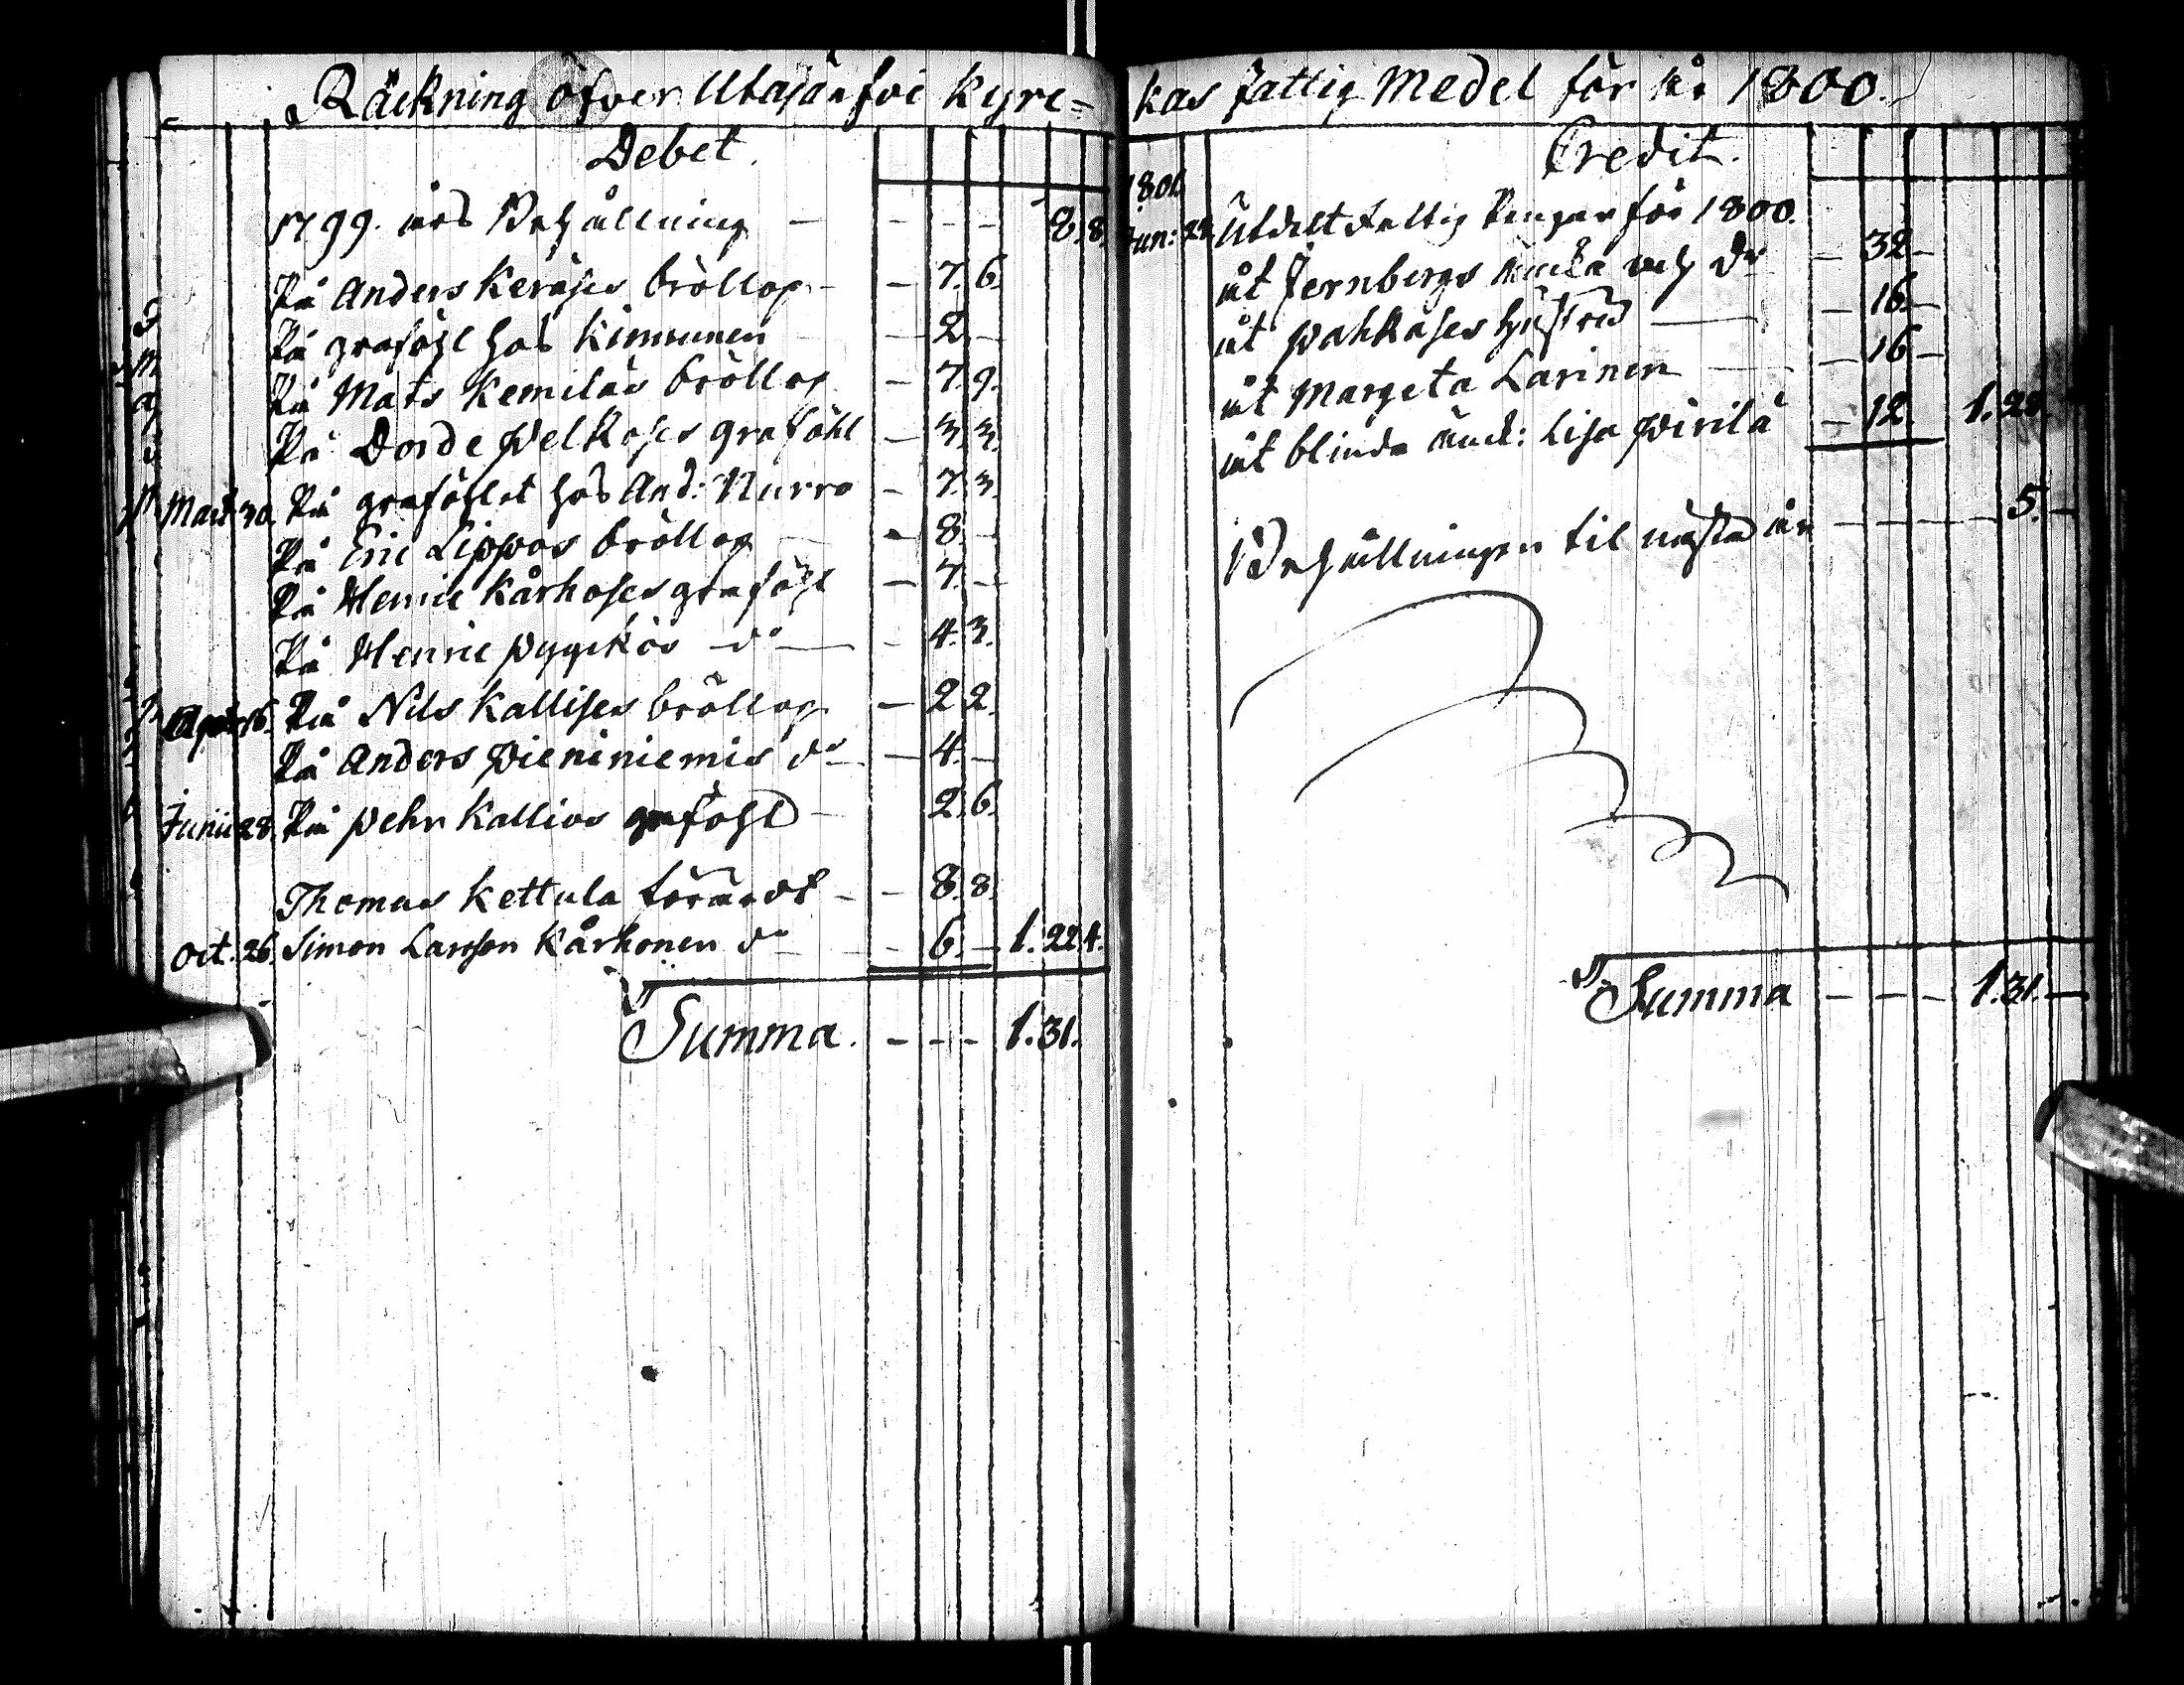 Räckning öfver Utajärfvi Kyrc=
Debet.
1799. års Behållning - - - - 8. 8
På Anders Keräses bröllop - - 7. 6.
På graföhl hos Kinnunen - 2. -
På Mats Kemiläs bröllop - 7. 9.
På Dorde Pelkoses graföhl - 3. 3.
Mart. 30. På graföhlet hos And: Nurro - 7. 3.
På Eric Lippos bröllop - 8. -
På Henric Kårhoses graföhl - 7. -
På Henric Pyyckös do - 4. 3.
April 16. På Nils Kallises bröllop - 2. 2.
På Anders Pieniniemis do - - 4. -
Junii 28. På Pehr Kallios graföhl - 2. 6.
Thomas Kettula förärdt - - 8. 8.
Oct. 26. Simon Larsson Kårhonen do - - 6. - 1. 22. 4.
Summa. - - - 1. 31.
kas fattig Medel för år 1800.
Credit.
1801.
Jun: 28. Utdelt Fattig Pengar för 1800.
åt Jernbergs Encka och Dr - 32 -
åt Pahkases hustru - 16. -
åt Margeta Larinen - 16 -
åt blinda Enck: Lisa Pirilä - 12. 1. 28.
Behållningen til nästa år - - - - 5. -
Summa - - - 1. 31. -